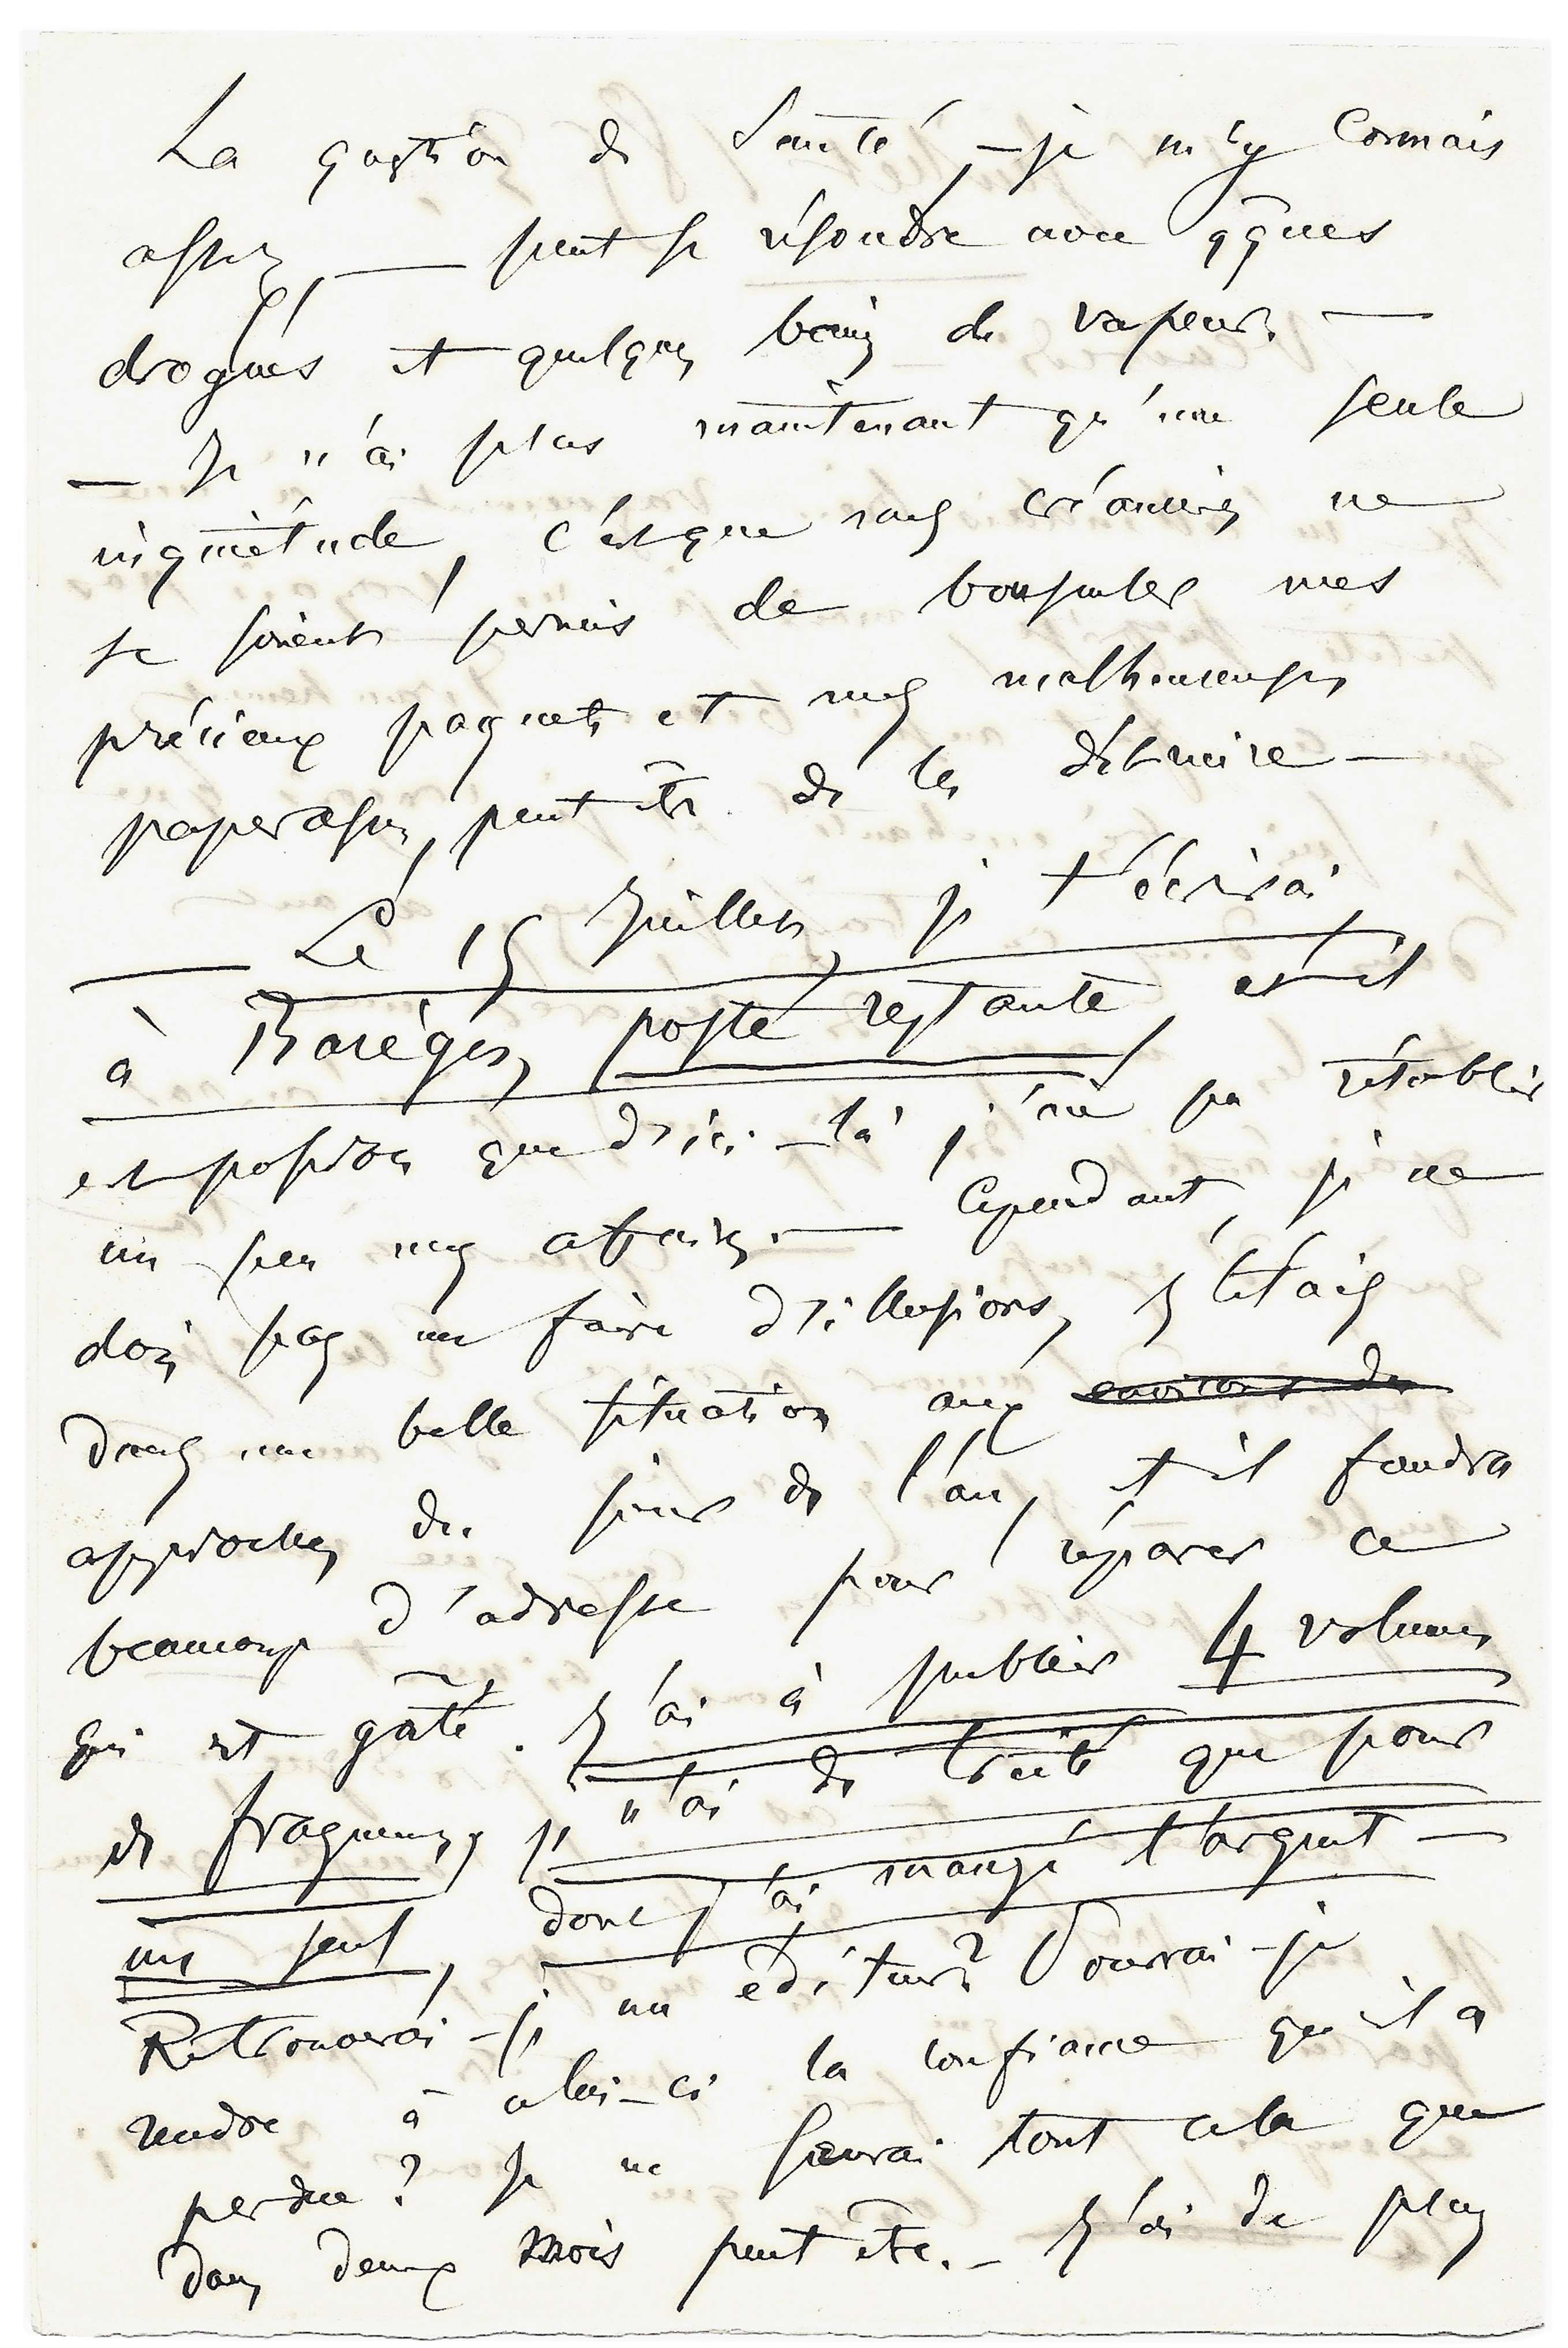 La question de Santé, – je m'y connais
assez, — peut se résoudre avec qques
drogues et quelques bains de vapeur. —
— Je n'ai plus maintenant qu'une seule
inquiétude, c'est que mes créanciers ne
se soient permis de bousculer mes
précieux paquets et mes malheureuses
paperasses, peut être de les détruire —
— Le 15 Juillet, je t'écrirai
à Barèges, poste restante, et il
est possible que d'ici-là j'aie pu rétablir
un peu mes affaires. — Cependant, je ne
dois pas me faire d'illusions, J'étais
dans une belle situation aux environs du
approches du jour de l'an, et il faudra
beaucoup d'adresse pour réparer ce
qui est gâté. J'ai à publier 4 volumes
de fragments, je n'ai de traité que pour
un seul, dont j'ai mangé l'argent —
Retrouverai-je un éditeur? Pourrai-je
rendre à celui-ci la confiance qu'il a
perdue? Je ne saurai tout cela que
dans deux mois peut être. – J'ai de plus